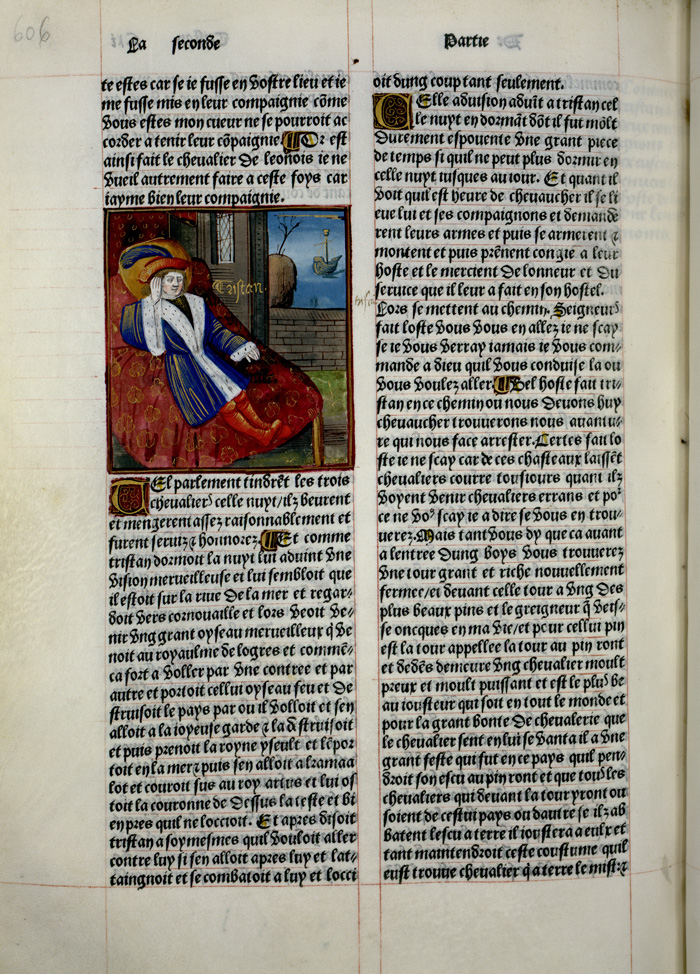 606
La seconde
Partie
te estes car se ie fusse en vostre lieu et ie
me fusse mis en leur compaignie cõme
vous estes mon cueur ne se pourroit ac
corder a tenir leur cõpaignie Or est
ainsi fait le chevalier de leonois ie ne
vueil autrement faire a ceste foys car
iayme bien leur compaignie.
Tristan.
Tel parlement tindrẽt les trois
chevalierˢ celle nuyt/ilz beurent
et mengerent assez raisonnablement et
furent seruiz ⁊ honnorez. Et comme
tristan dormoit la nuyt lui aduint vne
vision merueilleuse et lui sembloit que
il estoit sur la riue de la mer et regar⸗
doit vers cornouaille et lors veoit ve⸗
nir vng grant oyseau merueilleux q̃ ve
noit au royaulme de logres et commẽ⸗
ca fort a voller par vne contree et par
autre et portoit cellui oyseau feu et de
struisoit le pays par ou il volloit et sen
alloit a la ioyeuse garde ⁊ la destruisoit
et puis prenoit la royne yseult et lẽpor
toit en la mer ⁊ puis sen alloit a kamaa
lot et couroit sus au roy artus et lui os
toit la couronne de dessus la teste et bi
en pres quil ne loccioit. Et apres disoit
tristan a soy mesmes quil vouloit aller
contre luy si sen alloit apres luy et lat⸗
taingnoit et se combatoit a luy et locci
oit dung coup tant seulement.
Celle aduision aduĩt a tristan cel
le nuyt en dormãt dõt il fut mõlt
durement espouente vne grant piece
de temps si quil ne peut plus dormir en
celle nuyt iusques au iour. Et quant il
voit quil est heure de cheuaucher il se li
eue lui et ses compaignons et demande
rent leurs armes et puis se armerent ⁊
montent et puis prẽnent congie a leur
hoste et le mercient de lonneur et du
seruice que il leur a fait en son hostel.
Lors se mettent au chemin. Seigneurˢ
fait loste vous vous en allez ie ne scay
se ie vous verray iamais ie vous com⸗
mande a dieu quil vous conduise la ou
vous voulez aller. Bel hoste fait tri⸗
stan en ce chemin ou nous deuons huy
cheuaucher trouuerons nous auantu⸗
re qui nous face arrester. Certes fait lo
ste ie ne scay car de ces chasteaux laissẽt
cheualiers courre tousiours quant ilz
voyent venir cheualiers errans et poʳ
ce ne voˢ scay ie a dire se vous en trou⸗
uerez. Mais tant vous dy que ca auant
a lentree dung boys vous trouuerez
vne tour grant et riche nouuellement
fermee/et deuant celle tour a vng des
plus beaux pins et le greigneur q̃ veis⸗
se oncques en ma vie/et pour cellui pin
est la tour appellee la tour au pin ront
et dedẽs demeure vng cheualier moult
preux et moult puissant et est le plus be
au iousteur qui soit en tout le monde et
pour la grant bonte de cheualerie que
le cheualier sent en lui se vanta il a vne
grant feste qui fut en ce pays quil pen⸗
droit son escu au pin ront et que tous les
cheualiers qui deuant la tour yront ou
soient de cestui pays ou daultre se ilz ab
batent lescu a terre il ioustera a eulx et
tant maintendroit ceste coustume quil
eust trouue cheualier q̃ a terre le mist:⁊